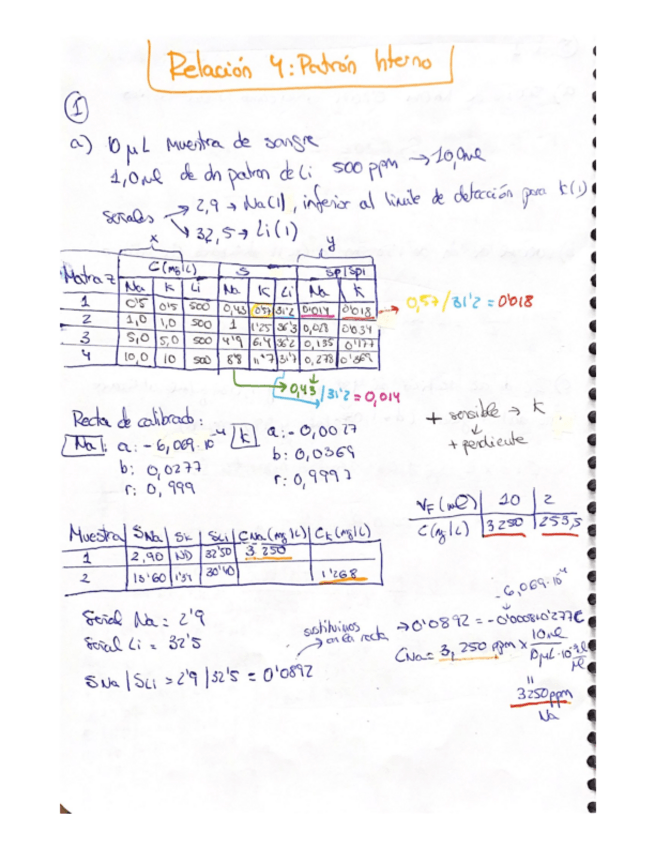 Relación 4: Patrón Interno
1
a) 10 μL muestra de sangre
1,0 ml de dn patron de Li 500 ppm → 10,0 ml
señales → 2,9 → Na(1), inferior al limite de detección para K(1)
→ 32,5 → Li(1)
x y
Matraz C(mg/L) S Sp/Spi
Na K Li Na K Li Na K
1 0'5 0'5 500 0,43 0'57 31'2 0'014 0'018 → 0,57/31'2 = 0'018
2 1,0 1,0 500 1 1'25 36'3 0,028 0'034
3 5,0 5,0 500 4'9 6'4 36'2 0,135 0'177
4 10,0 10 500 8'8 11'7 31'7 0,278 0'369
→ 0,43/31'2 = 0,014
Recta de calibrado: + sensible → K
Na: a: -6,069·10⁻⁴ K a: -0,0027 + pendiente
b: 0,0277 b: 0,0369
r: 0,999 r: 0,9999
VF (ml) 10 2
C(mg/L) 3250 253,5
Muestra SNa SK SLi CNa(mg/L) CK(mg/L)
1 2,90 ND 32'50 3'250
2 10'60 30'40 1'268
-6,069·10⁻⁴
Señal Na = 2'9
Señal Li = 32'5
sustituimos en la recta → 0'0892 = C
SNa/SLi = 2'9/32'5 = 0'0892
CNa = 3,250 ppm × 10 ml
10 μL·10⁻³ ml
μL
"
3250 ppm
Na